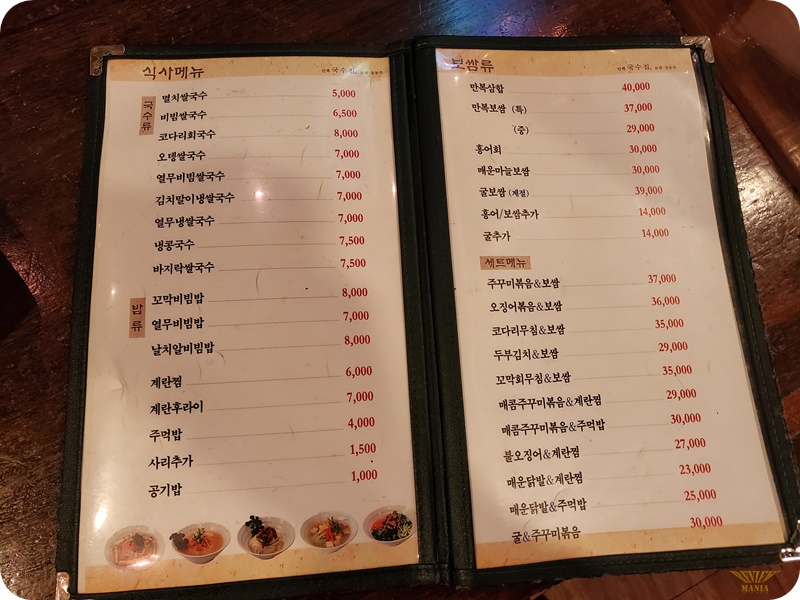 식사메뉴
만복국수집
국수류
멸치쌀국수 5,000
비빔쌀국수 6,500
코다리회국수 8,000
오뎅쌀국수 7,000
열무비빔쌀국수 7,000
김치말이냉쌀국수 7,000
열무냉쌀국수 7,000
냉콩국수 7,500
바지락쌀국수 7,500
밥류
꼬막비빔밥 8,000
열무비빔밥 7,000
날치알비빔밥 8,000
계란찜 6,000
계란후라이 7,000
주먹밥 4,000
사리추가 1,500
공기밥 1,000
보쌈류
국수집
만복삼합 40,000
만복보쌈 (특) 37,000
(중) 29,000
홍어회 30,000
매운마늘보쌈 30,000
굴보쌈 (계절) 39,000
홍어/보쌈추가 14,000
굴추가 14,000
세트메뉴
주꾸미볶음&보쌈 37,000
오징어볶음&보쌈 36,000
코다리무침&보쌈 35,000
두부김치&보쌈 29,000
꼬막회무침&보쌈 35,000
매콤주꾸미볶음&계란찜 29,000
매콤주꾸미볶음&주먹밥 30,000
불오징어&계란찜 27,000
매운닭발&계란찜 23,000
매운닭발&주먹밥 25,000
굴&주꾸미볶음 30,000
MANIA